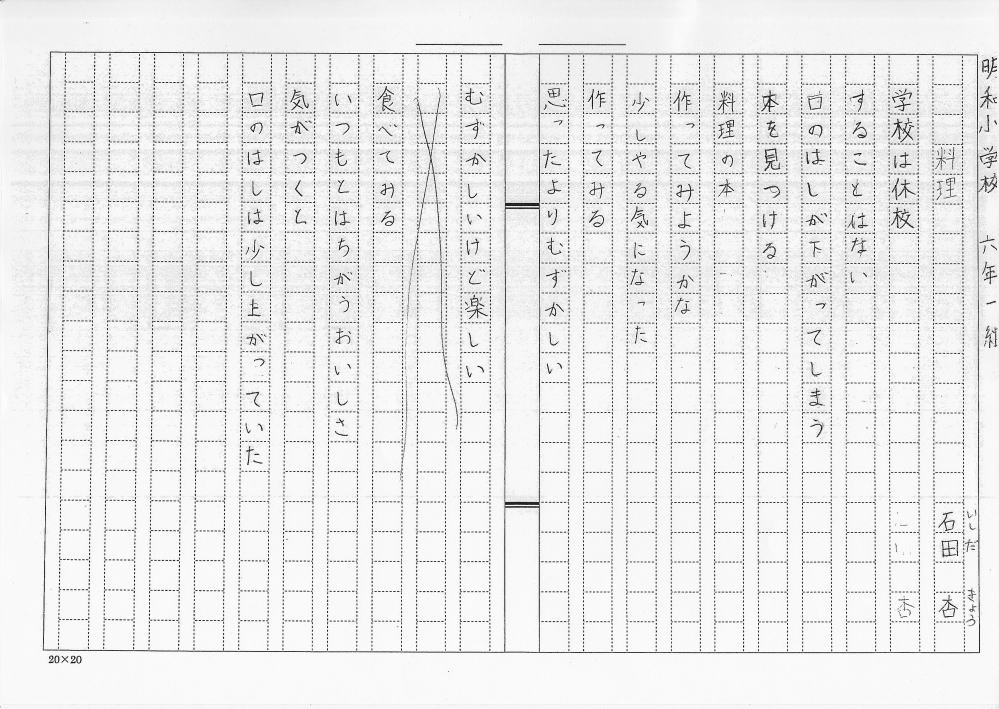 明和小学校 六年一組
料理
いしだ きょう
石田 杏
学校は休校
杏
することはない
口のはしが下がってしまう
本を見つける
料理の本
作ってみようかな
少しやる気になった
作ってみる
思ったよりむずかしい
むずかしいけど楽しい
食べてみる
いつもとはちがうおいしさ
気がつくと
口のはしは少し上がっていた
20×20